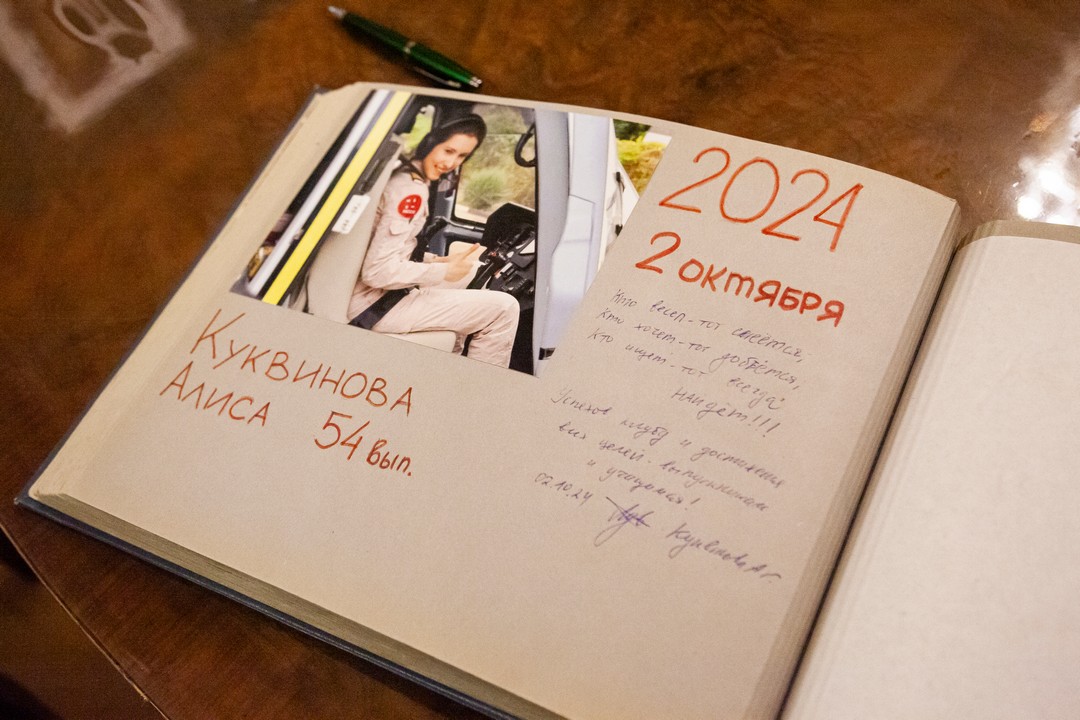 2024
2 ОКТЯБРЯ
Кто весел - тот смеётся,
Кто хочет - тот добьётся,
Кто ищет - тот всегда
найдёт!!!
Успехов клубу и достижения
всех целей выпускникам
и учащимся!
02.10.24 Куквинова А.Г.
КУКВИНОВА
АЛИСА 54 вып.